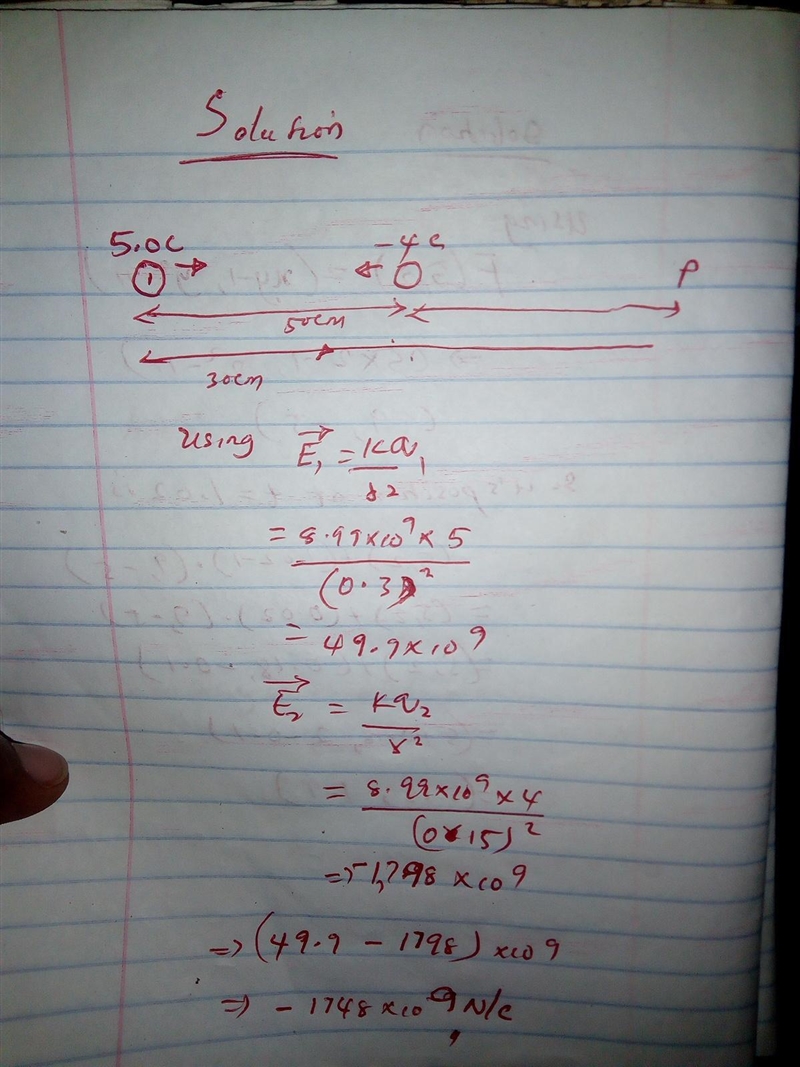 Solution
5.0c -4c
1 P
50cm
30cm
Using E₁ = kq₁
r2
= 8.99x10⁹ x 5
(0.3)²
= 49.9x10 9
E₂ = kq₂
r²
= 8.99x10⁹ x 4
(0.15)²
=> -1,798 x10 9
=> (49.9 - 1798) x10 9
=> - 1748x10 9 N/C